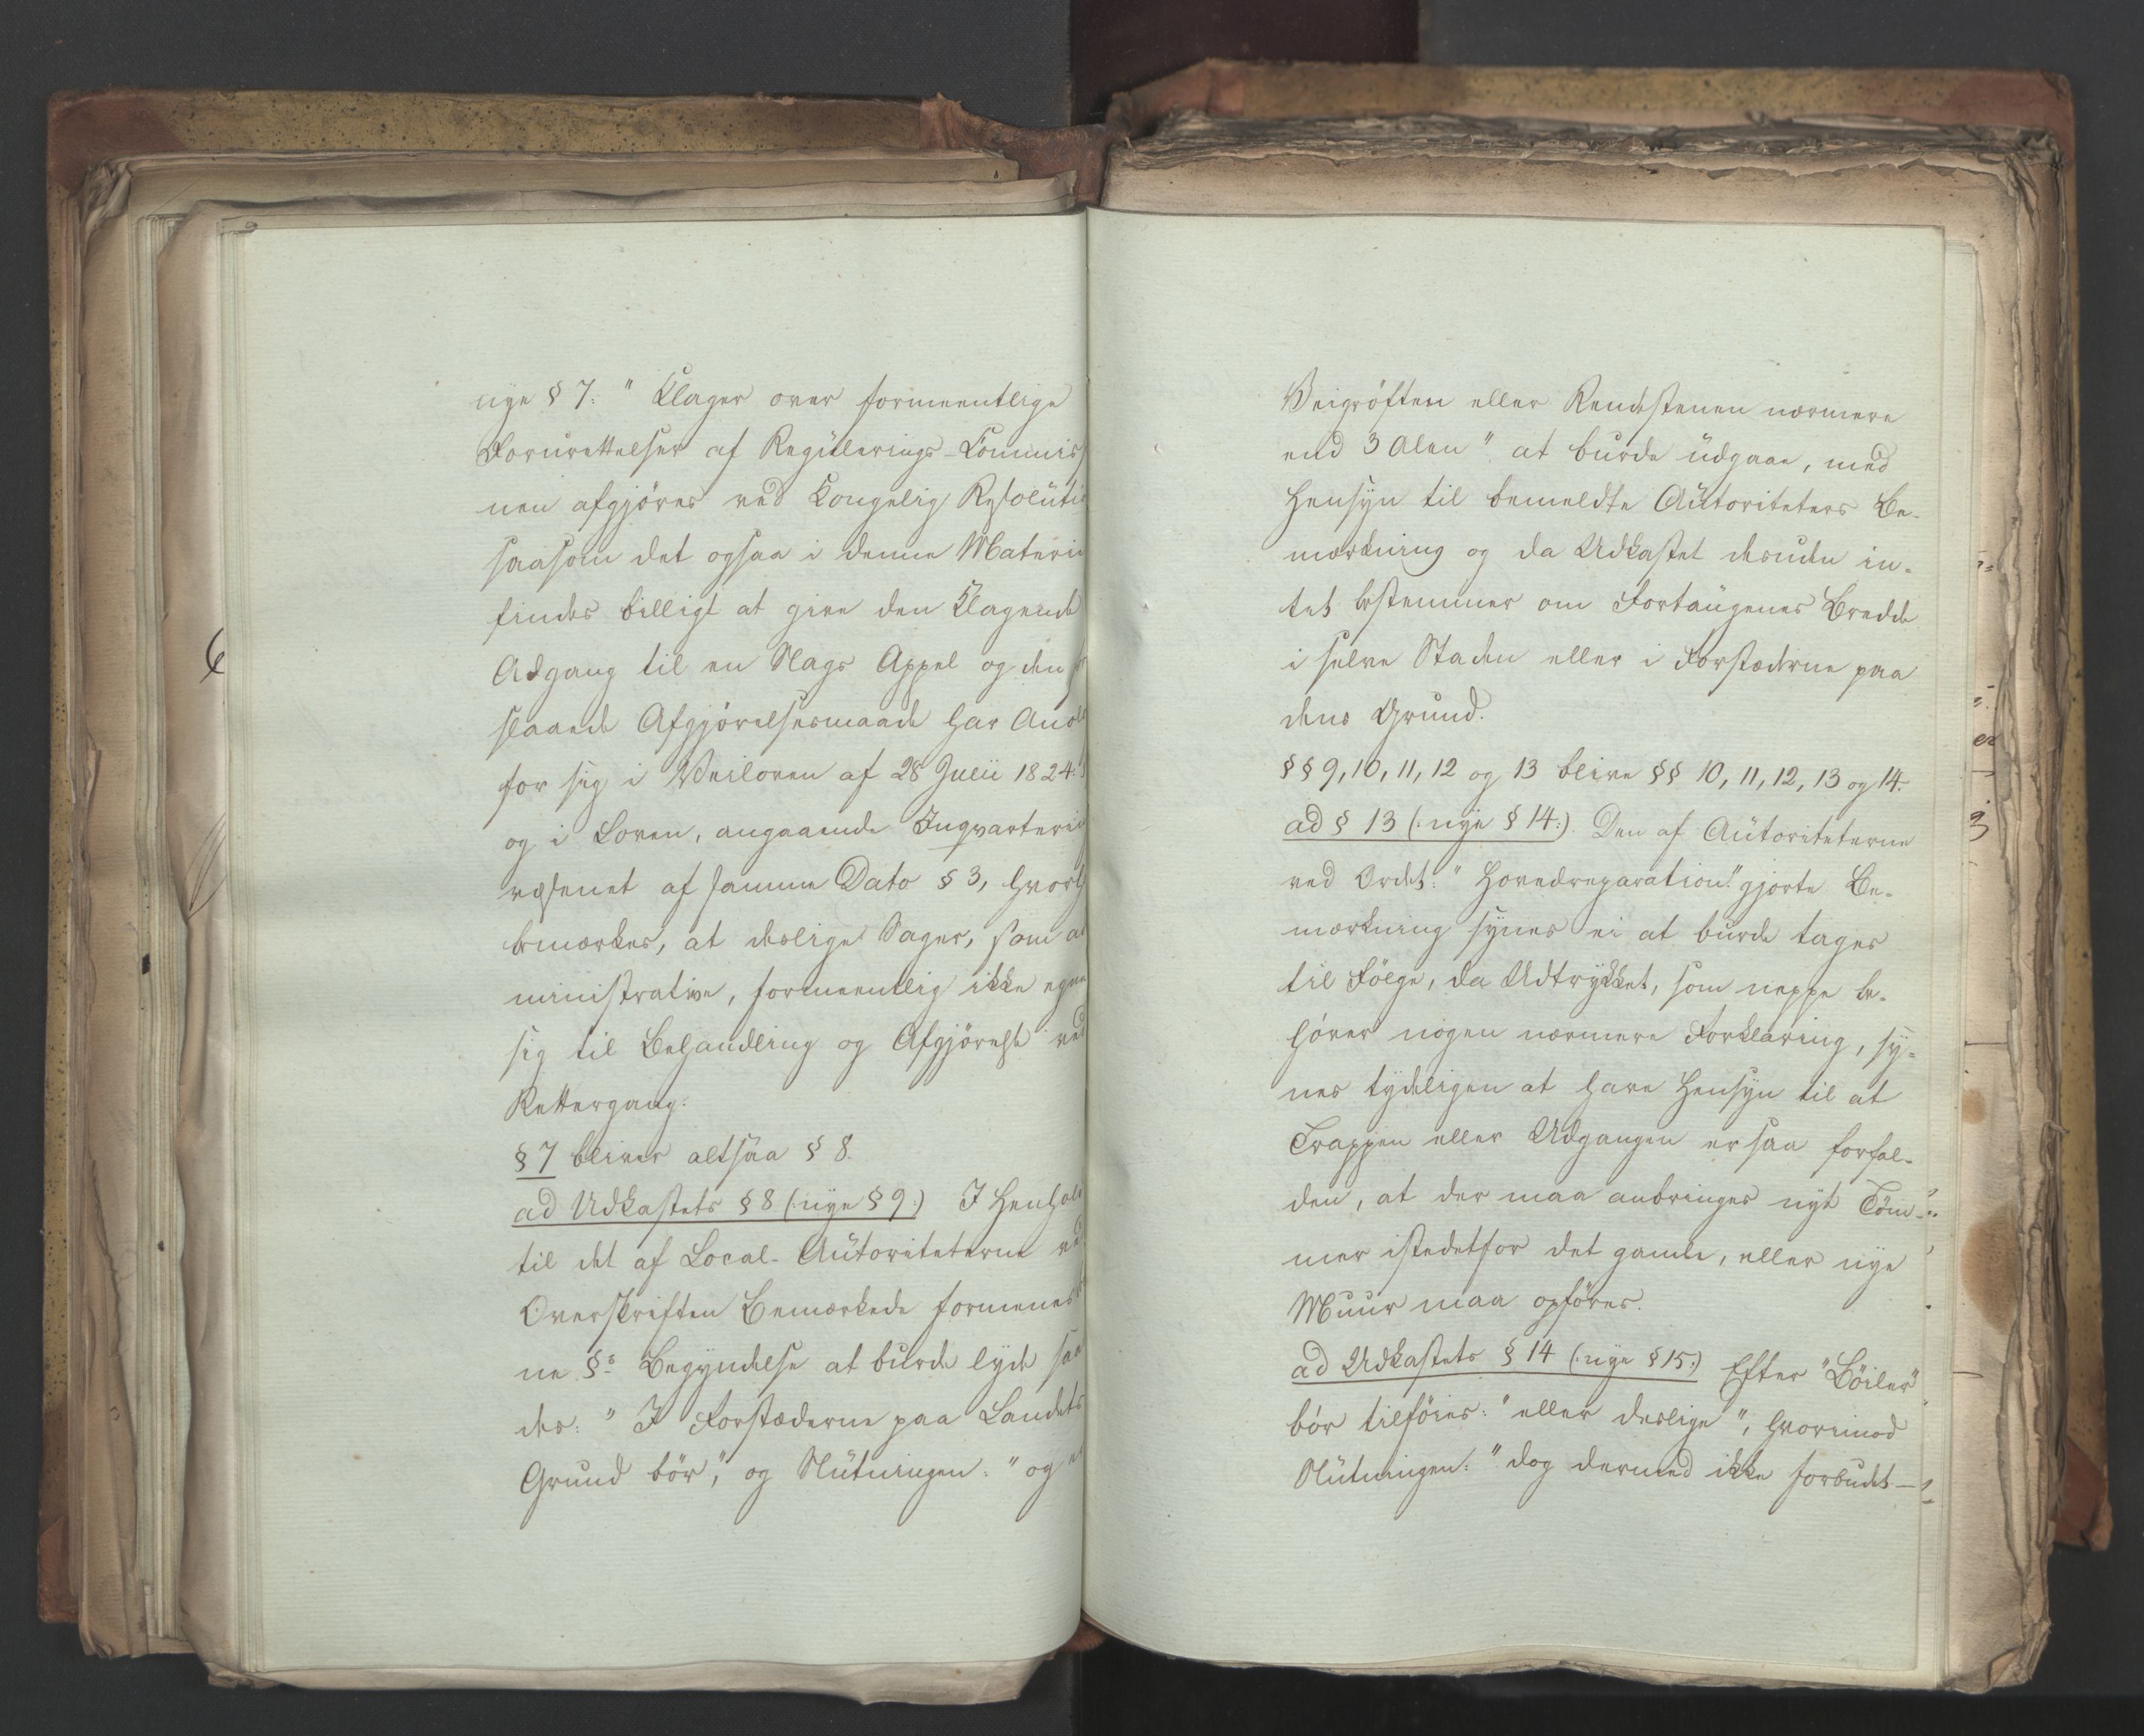 nye § 7: "Klager over formeentlige
Forurettelser af Regulerings-Commis
nen afgjöres ved Kongelig Resoluti
saasom det ogsaa i denne Materie
findes billigt at give den Klagende
Adgang til en Slags Appel og den
slaaede Afgjörelsesmaade har Anal
for sig i Veiloven af 28 Julii 1824
og i Loven, angaaende Inqvarterin
væsenet af samme Dato § 3, hvorh
bemærkes, at deslige Sager, som ad
ministrative, formeentlig ikke egne
sig til Behandling og Afgjörelse ved
Rettergang.
§ 7 bliver altsaa § 8.
ad Udkastets § 8 (: nye § 9:) I Henhold
til det af Local-Autoriteterne ved
Overskriften Bemærkede formenes
ne §s Begyndelse at burde lyde saa
des: "I Forstæderne paa Landets
Grund bör", og Slutningen: "og
Veigröften eller Rendestenen nærmere
end 3 Alen" at burde udgaae, med
Hensyn til bemeldte Autoriteters Be-
mærkning og da Udkastet desuden in-
tet bestemmer om Fortaugenes Bredde
i selve Staden eller i Forstæderne paa
dens Grund.
§§ 9, 10, 11, 12 og 13 blive §§ 10, 11, 12, 13 og 14.
ad § 13 (: nye § 14:). Den af Autoriteterne
ved Ordet: "Hovedreparation" gjorte Be-
mærkning synes ei at burde tages
til Fölge, da Udtrykket, som neppe be-
höver nogen nærmere Forklaring, sy-
nes tydeligen at have Hensyn til at
Trappen eller Udgangen er saa forfal-
den, at der maa anbringes nyt Töm-
mer istedetfor det gamle, eller nye
Muur maa opföres.
ad Udkastets § 14 (: nye § 15:) Efter "Böiler"
bör tilföies: "eller deslige", hvorimod
Slutningen: "dog dermed ikke forbudet—